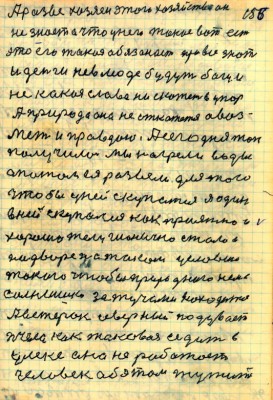 А разве хозяен этого хозяйства он 155
не знает а что у него такое вот ест
это его такая обязаность про все знать
и деги не в моде будут бо
не какая слава ни скажеть в упор
А природа она не стоит а воз
мет и правдою. А сегодня так
получилос мы нагрели воды
а потом ея развели для того
что бы у ней скупатся я один
в ней скупался как приятно и
хорошо железионично стало в
надворе на таком условие
такого чтобы при одного нема
солнышко за тучами находится
А ветерок северный подувает
пчела как таковая седить в
улеке она не работает
человек об этом тужить